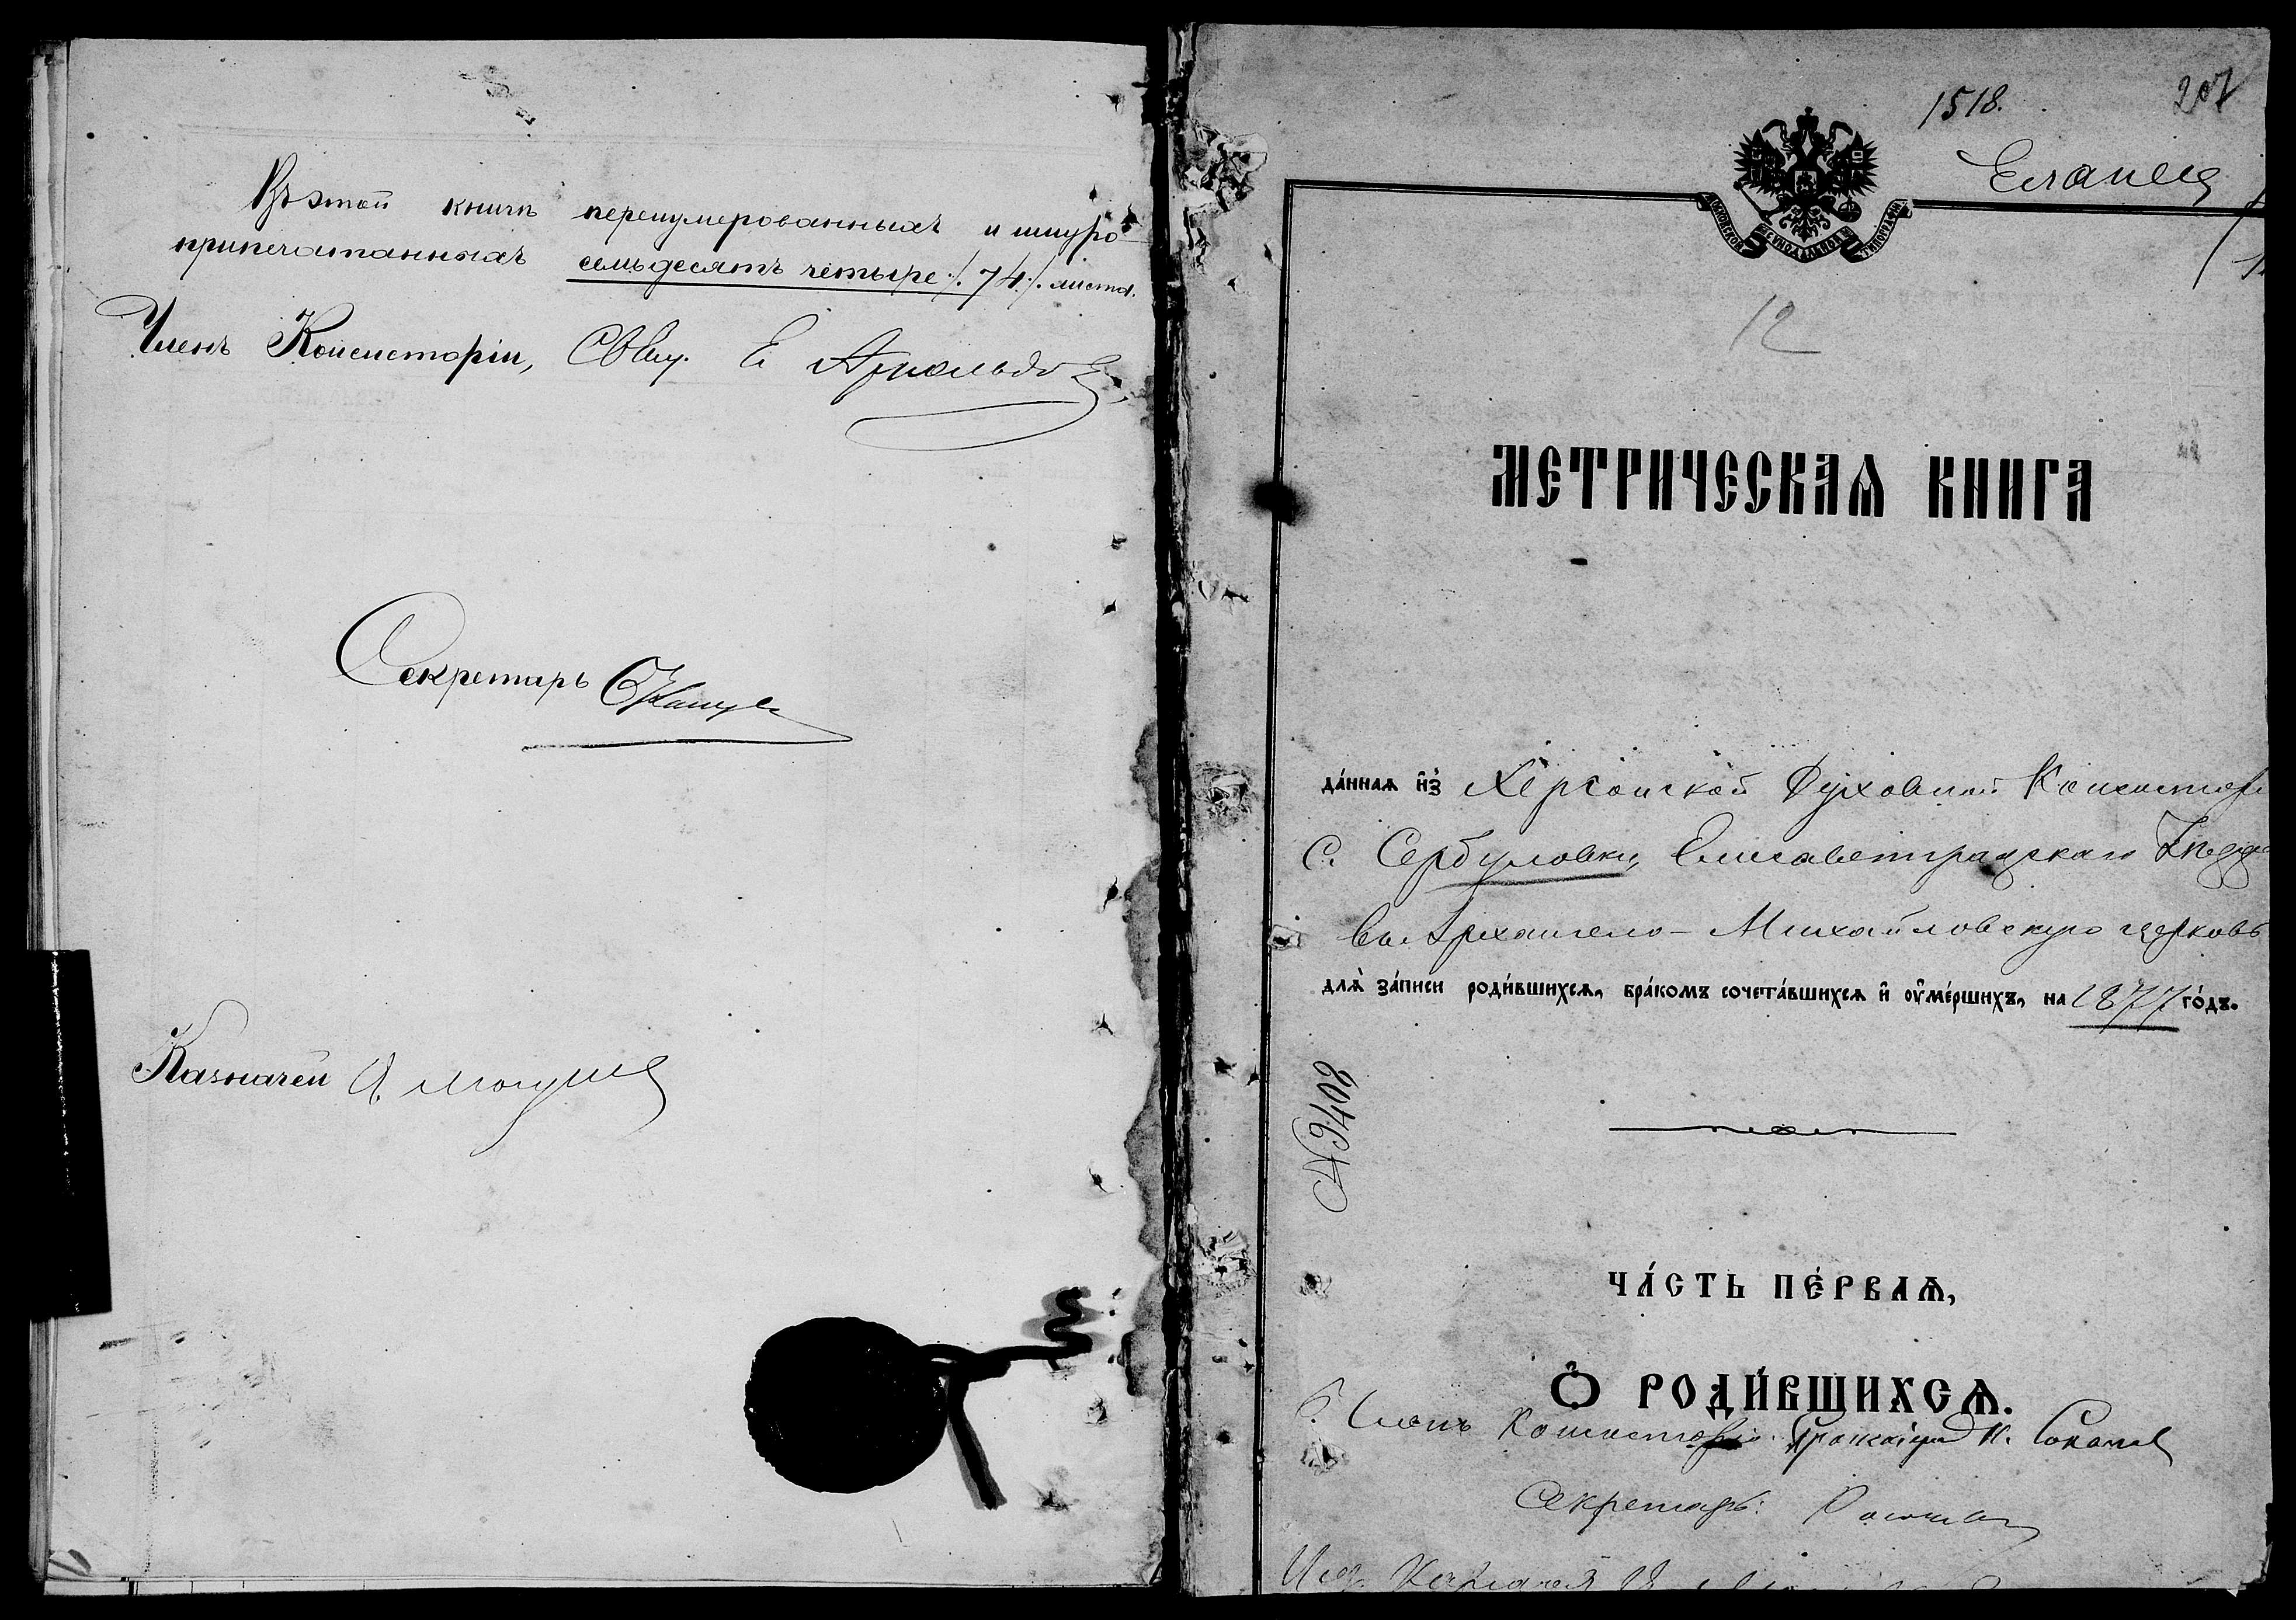 Въ этой книгѣ перенумерованныхъ и шнуро-
припечатанныхъ семьдесятъ четыре ./. 74 ./. листа.
Членъ Консисторіи, Свящ. Е Арнольдовъ
Секретарь
Казначей
1518.
207
Еланецъ
МОСКОВСКОЙ СѴНОДАЛЬНОЙ ТИПОГРАФІИ
12
МЕТРИЧЕСКАѦ КНИГА
да́ннаѧ и҆з̾ Херсонской Духовной Консистор
С. Сербуловки, Елисаветградскаго Уѣзда
въ Архангело-Михайловскую церковь
длѧ̀ за́писи роди́вшихсѧ, бра́комъ сочета́вшихсѧ и҆ ᲂу҆ме́ршихъ, на 1877 го́дъ.
№ 9408
ЧА́СТЬ ПЕ́РВАѦ,
Ѽ РОДИ́ВШИХСѦ.
Членъ Консисторіи Протоіерей И. Соколовъ
Секретарь: